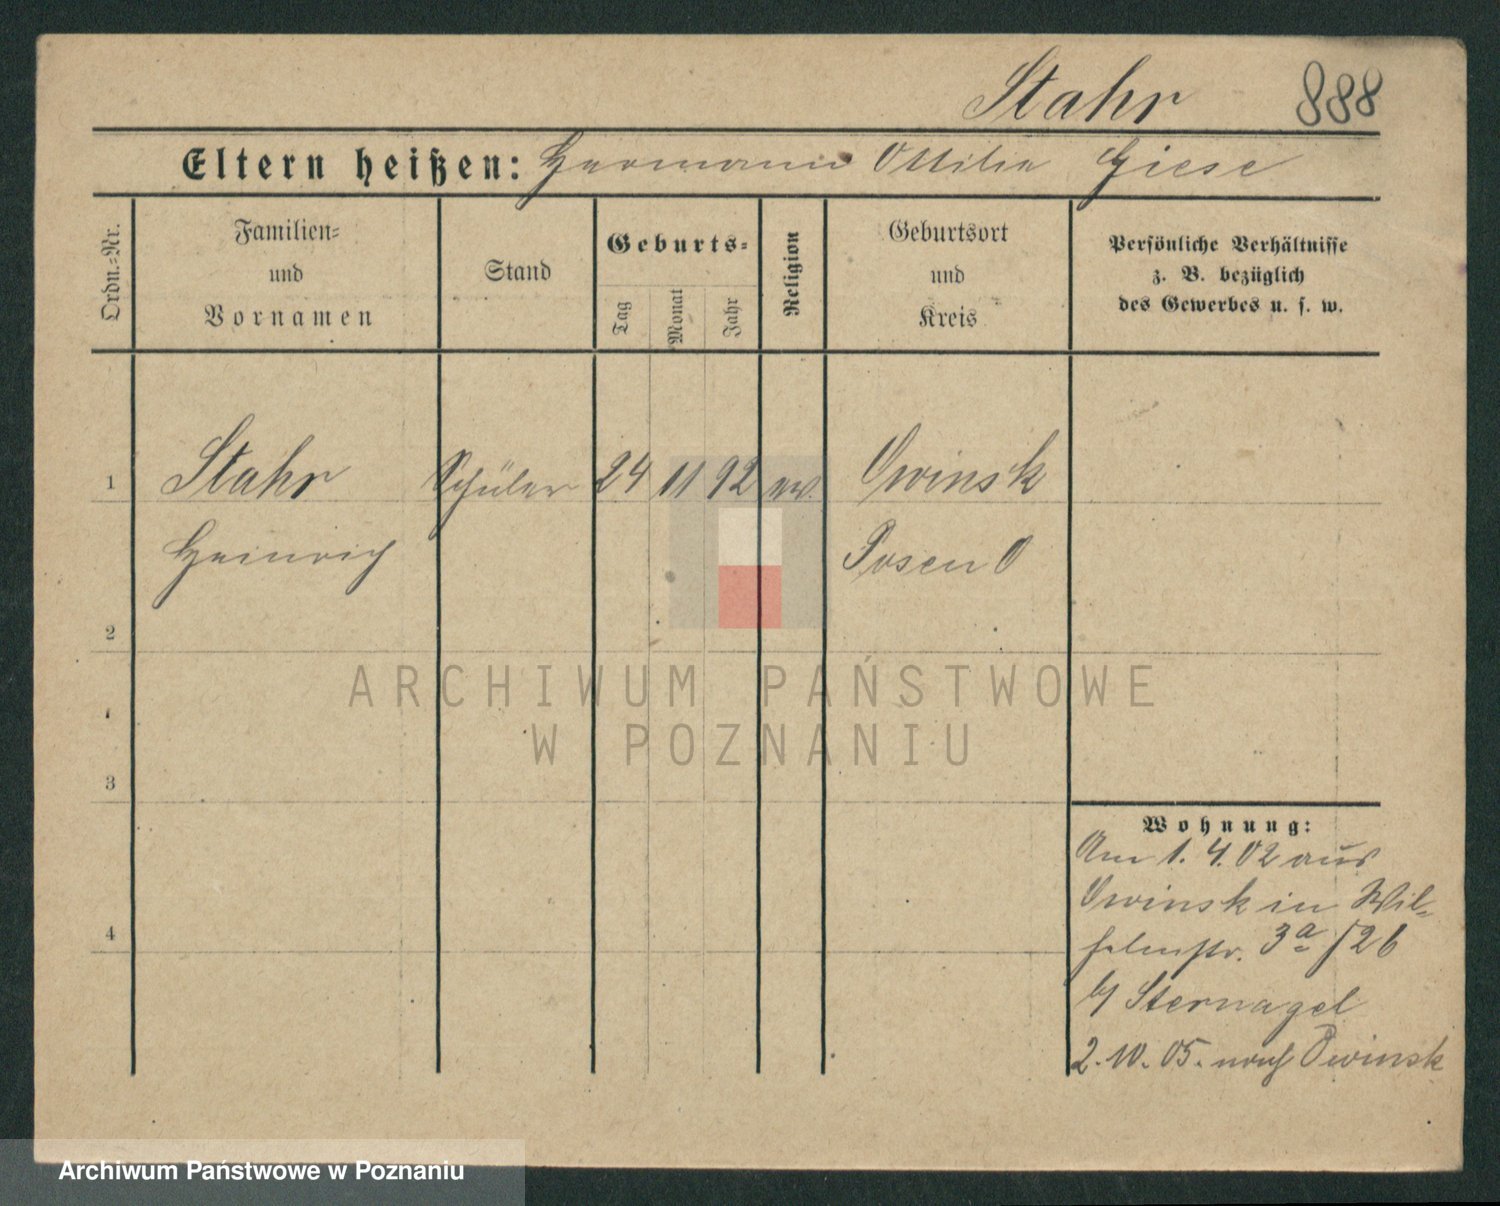 Stahr 888
Eltern heißen: Hermann Ottilie Giese
Ordn.-Nr.
Familien-
und
Vornamen
Stand
Geburts-
Tag
Monat
Jahr
Religion
Geburtsort
und
Kreis
Persönliche Verhältnisse
z. B. bezüglich
des Gewerbes u. s. w.
1 Stahr Schüler 24 11 92 ev. Owinsk
Heinrich Posen O
2
3
4
Wohnung:
Am 1. 4. 02 aus
Owinsk in Wil-
helmstr. 3a / 26
b/ Sternagel
2. 10. 05. nach Owinsk
ARCHIWUM PAŃSTWOWE
W POZNANIU
Archiwum Państwowe w Poznaniu